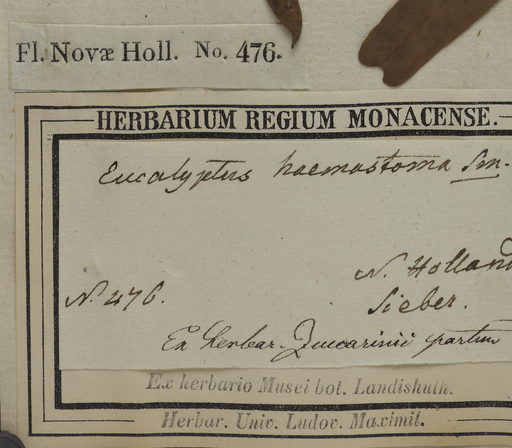 Fl. Novæ Holl. No. 476.
HERBARIUM REGIUM MONACENSE.
Eucalyptus haemastoma Sm.
N. Holland
N. 476.
Sieber.
Ex herbar. Zuccarinii partim
Ex herbario Musei bot. Landishuth.
Herbar. Univ. Ludov. Maximil.